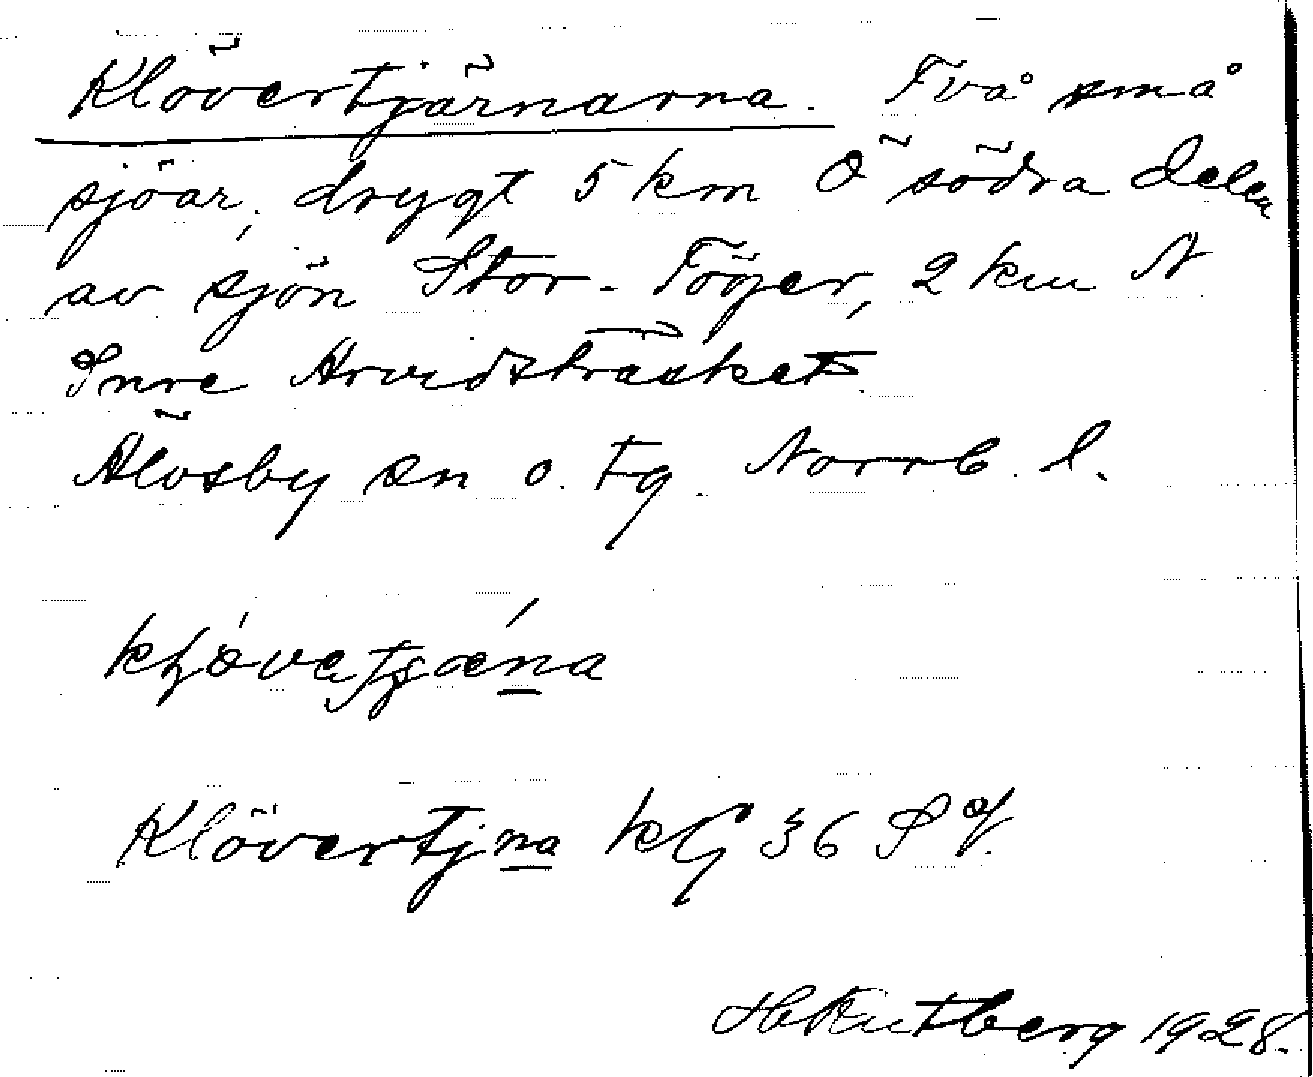 Klövertjärnarna. Två små
sjöar, drygt 5 km Ö södra delen
av sjön Stor-Töger, 2 km N
Inre Arvidsträsket.
Älvsby sn o. tg. Norrb. l.
Klövertjna kG 36 S
H Rutberg 1928.